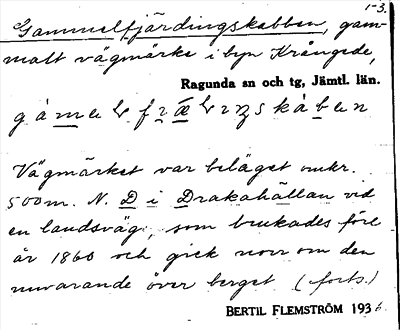 1-3.
Gammelfjärdingskabben, gam-
malt vägmärke i byn Krångede,
Ragunda sn och tg, Jämtl. län.
Vägmärket var beläget omkr.
500 m. N. D i Drakahällan vid
en landsväg, som brukades före
år 1860 och gick norr om den
nuvarande över berget. (forts.)
BERTIL FLEMSTRÖM 1936